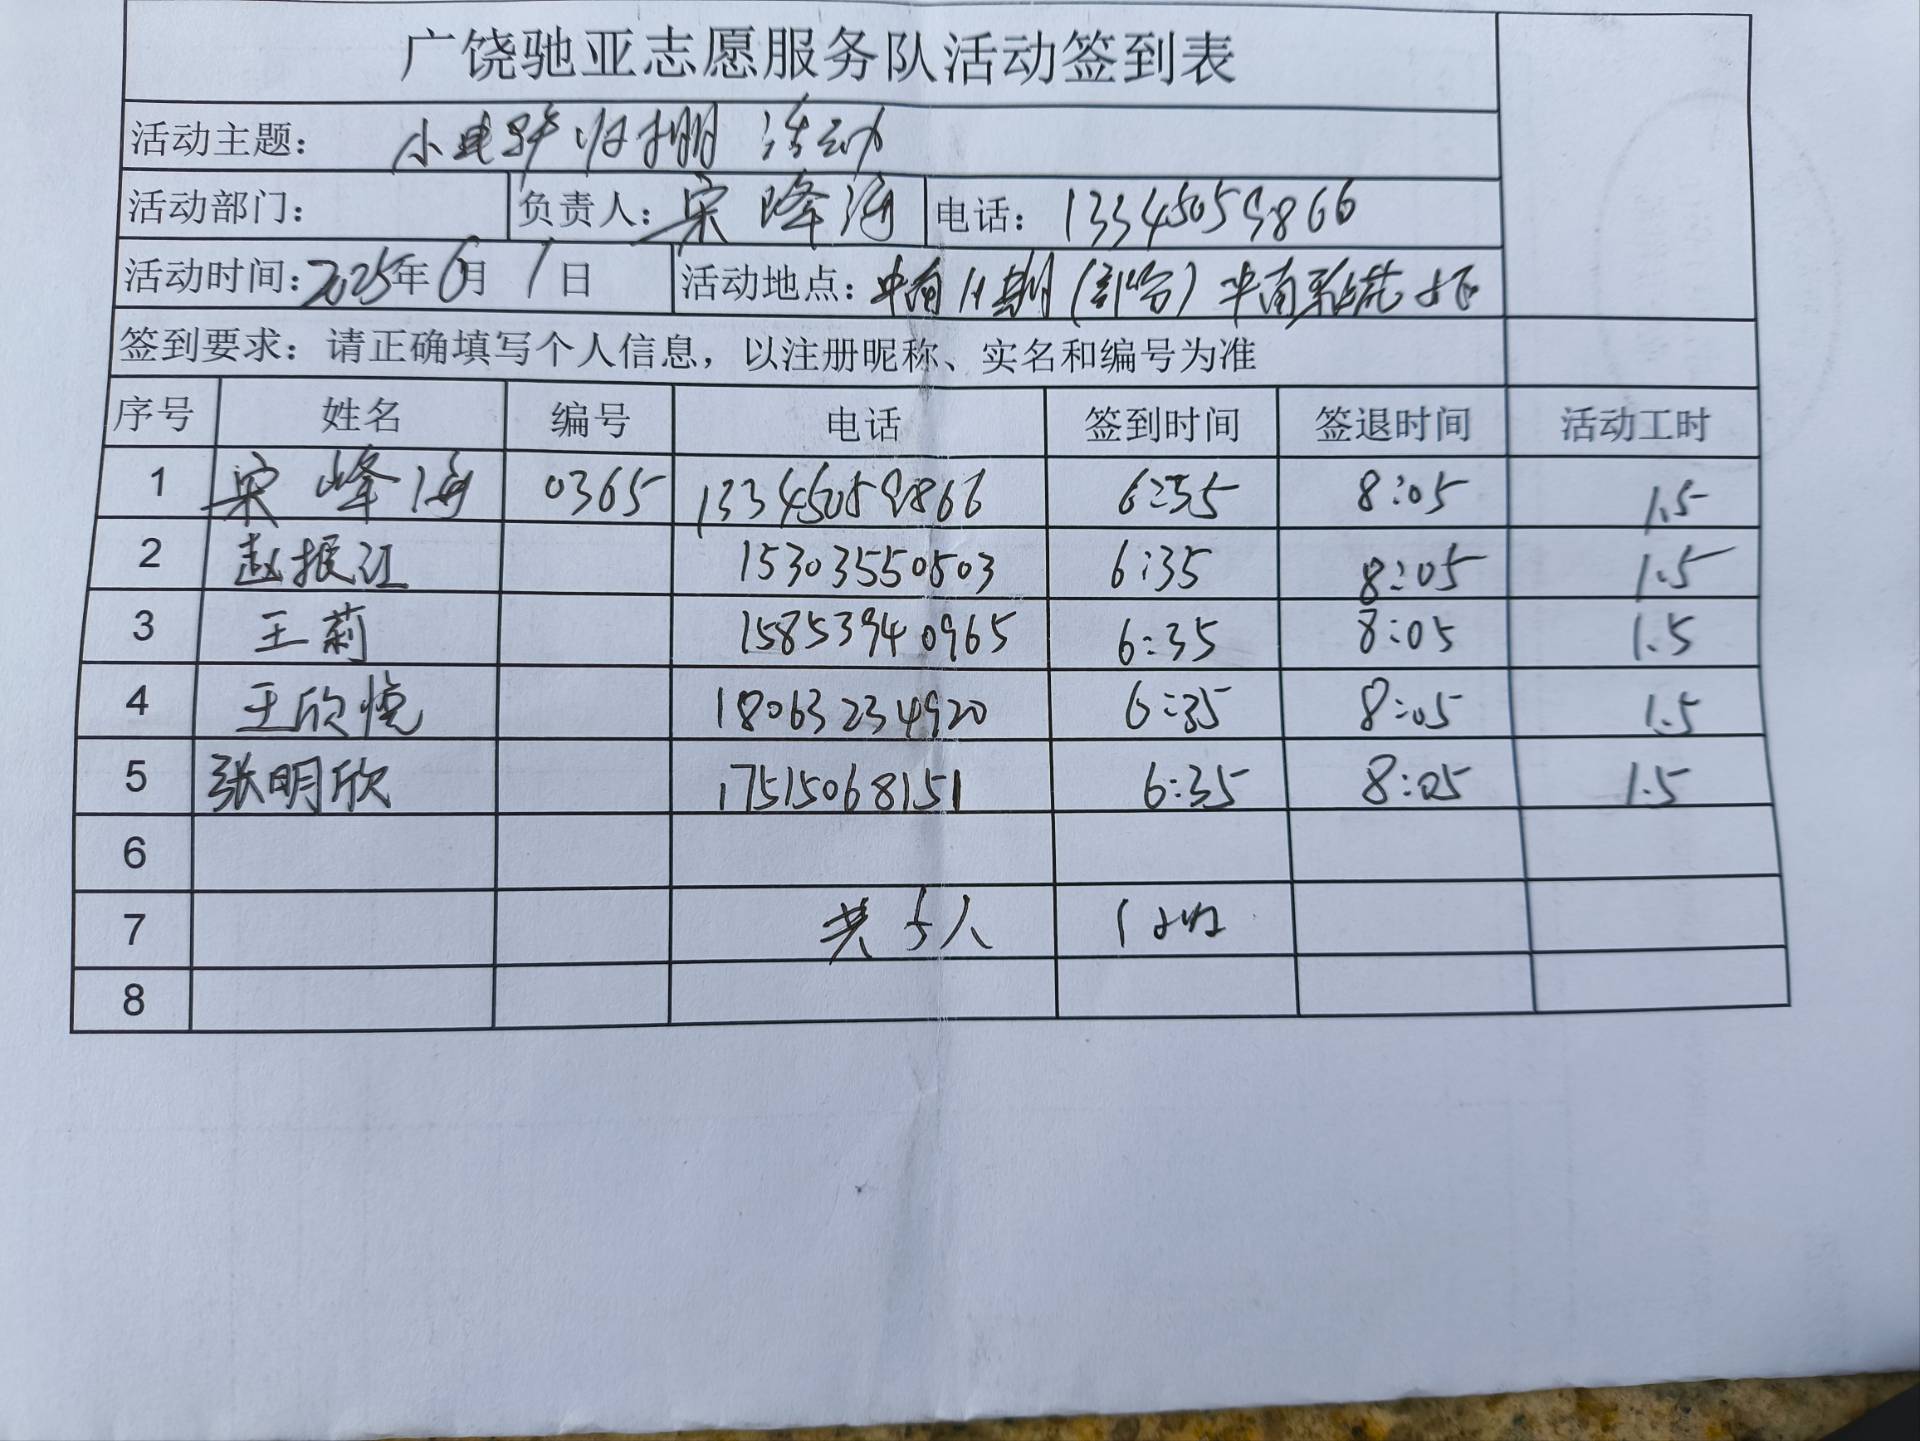 广饶驰亚志愿服务队活动签到表
活动主题: 小电驴归棚 活动
活动部门: 负责人: 宋峰海 电话: 13345059866
活动时间: 2025年6月1日 活动地点: 中南 期(部分) 中南 花
签到要求: 请正确填写个人信息，以注册昵称、实名和编号为准
序号 姓名 编号 电话 签到时间 签退时间 活动工时
1 宋峰海 0365 13345059866 6:35 8:05 1.5
2 赵振江 15303550503 6:35 8:05 1.5
3 王莉 15853940965 6:35 8:05 1.5
4 王欣悦 18063234920 6:35 8:05 1.5
5 张明欣 17515068151 6:35 8:05 1.5
6
7 共5人 1
8